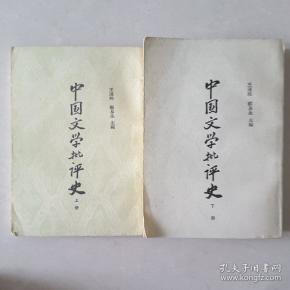 王运熙 顾易生 主编
中国文学批评史
上册
王运熙 顾易生 主编
中国文学批评史
下册
孔夫子旧书网